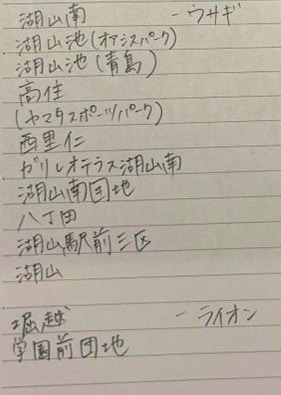 湖山南 ーウサギ
湖山池(オアシスパーク)
湖山池(青島)
高住
(ヤマタスポーツパーク)
西里仁
ガリレオテラス湖山南
湖山南団地
八丁田
湖山駅前三区
湖山
堀越 ーライオン
学園前団地